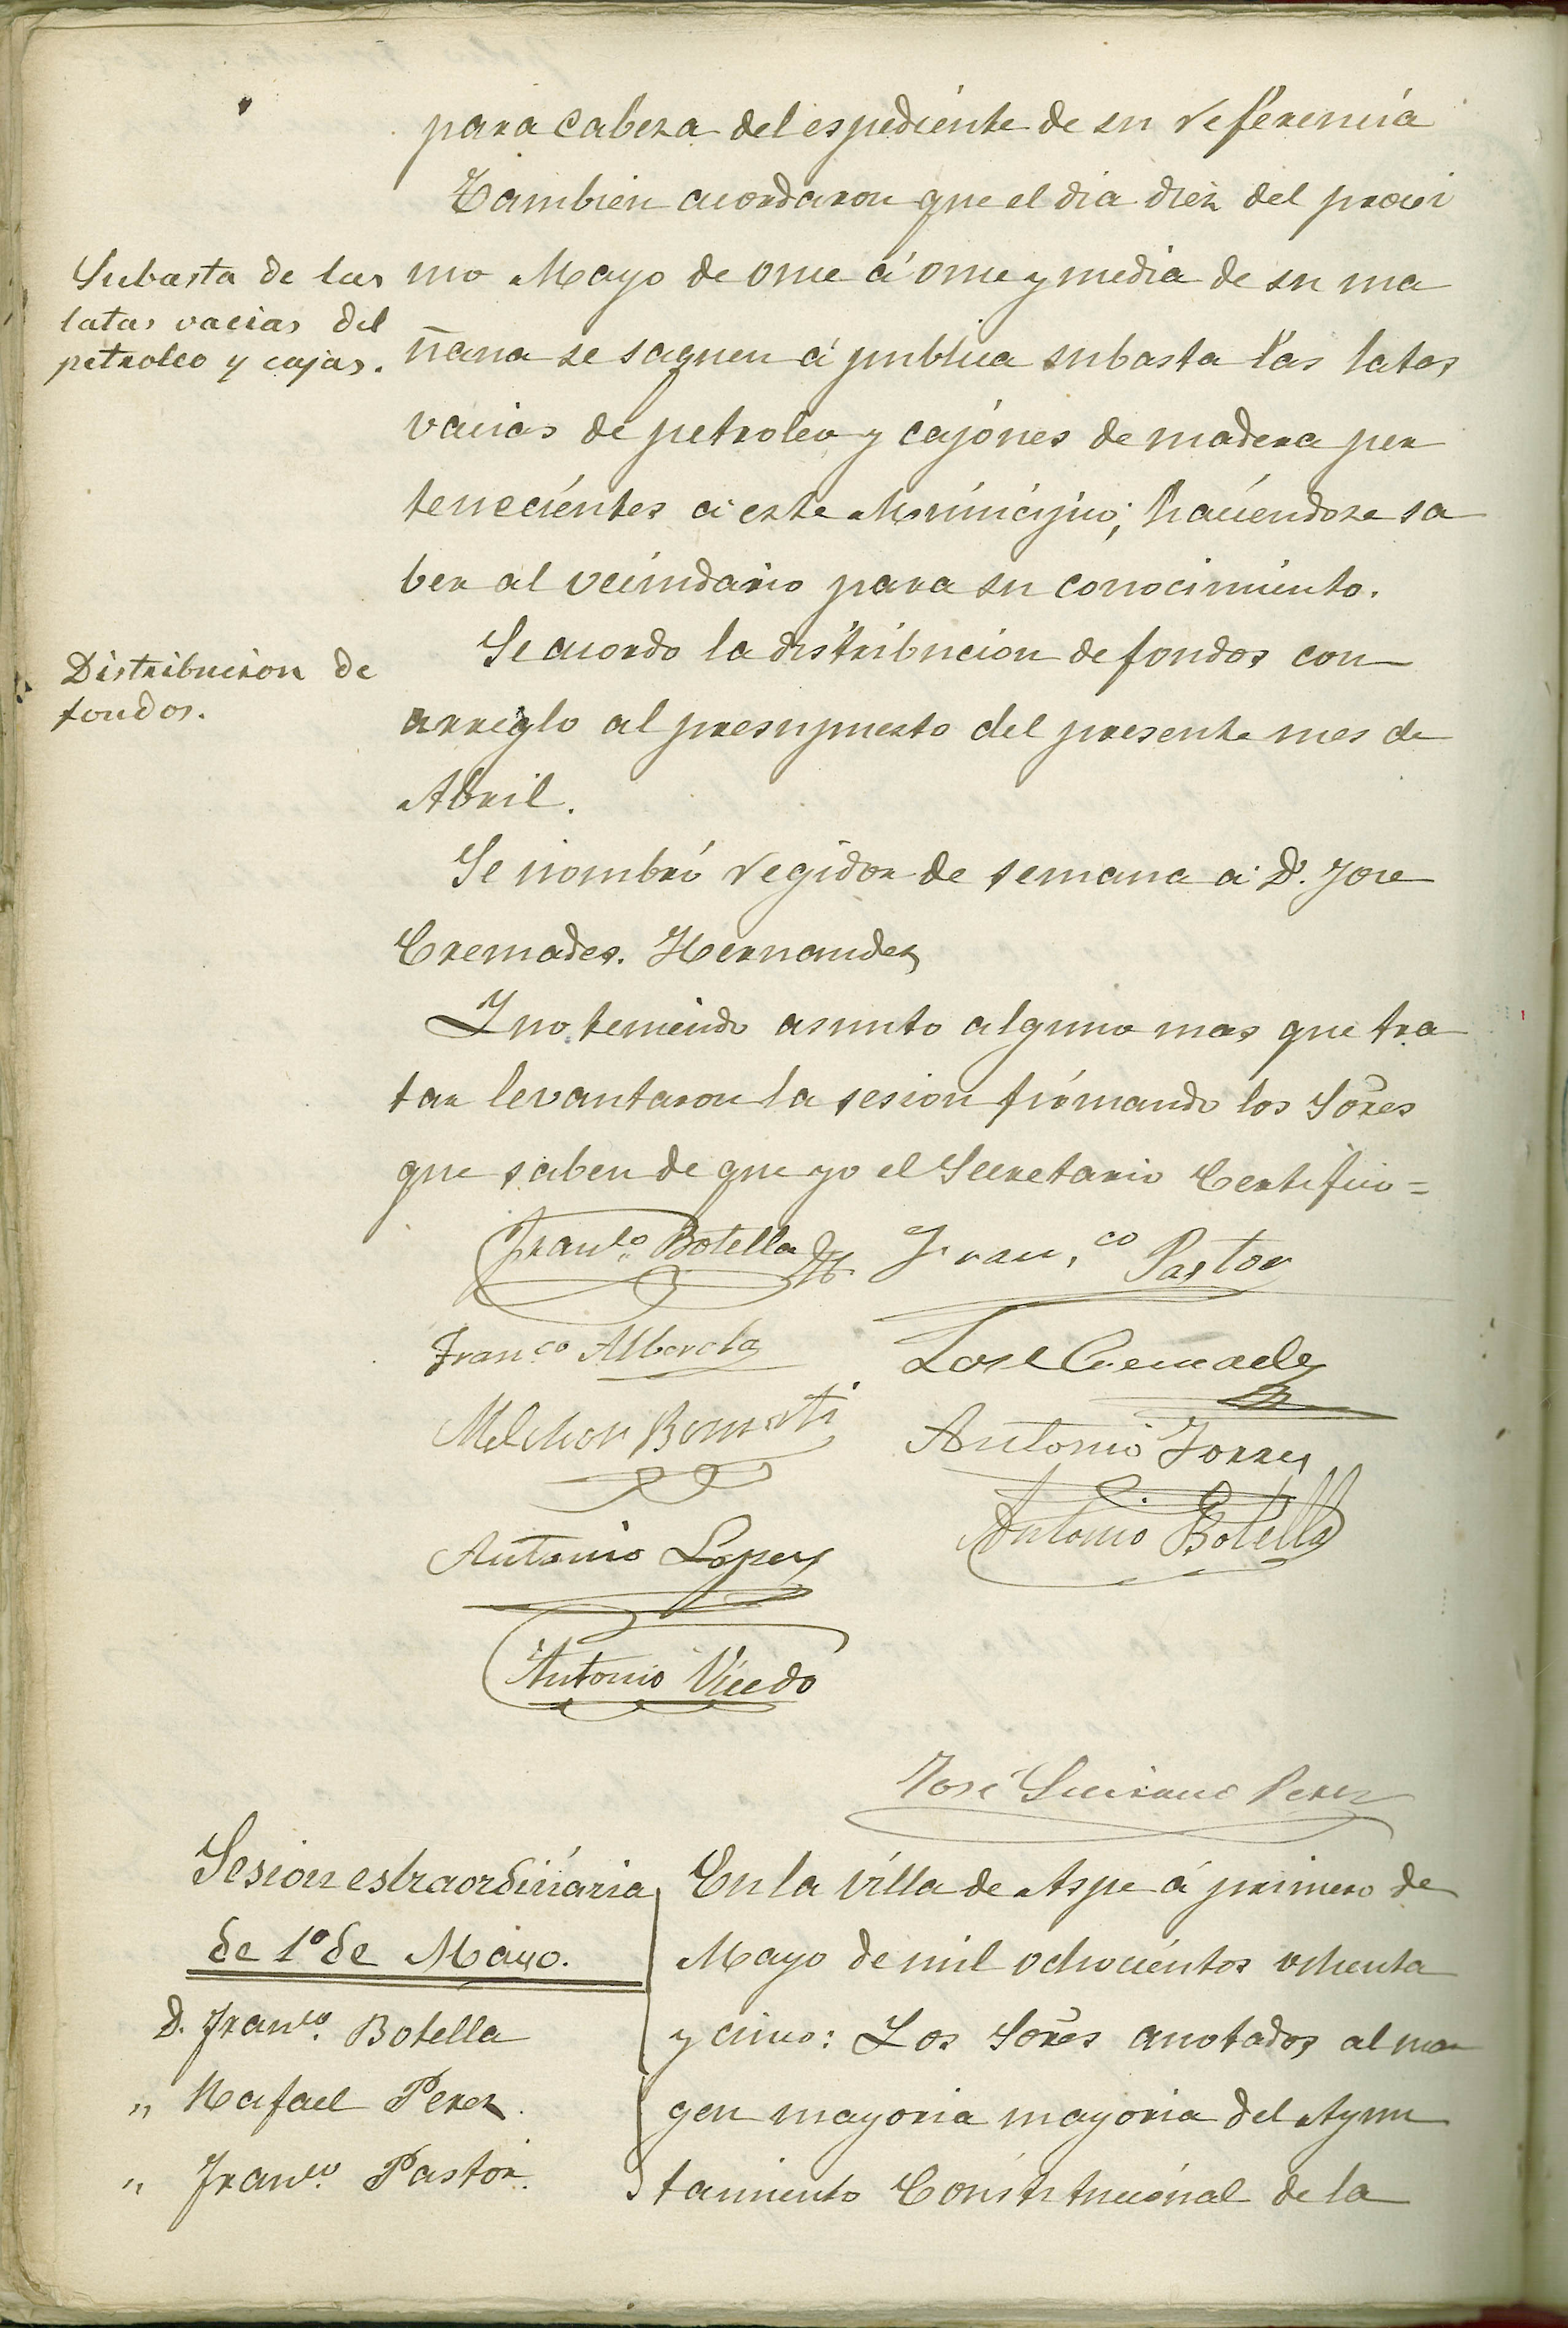 para cabeza del espediente de su referencia
Tambien acordaron que el dia diez del procsi
Subasta de las
latas vacias del
petroleo y cajas.
mo Mayo de once á once y media de su ma
ñana se saquen á publica subasta las latas
vacias de petroleo y cajones de madera per
tenecientes á este Municipio; haciendose sa
ber al vecindario para su conocimiento.
Distribucion de
fondos.
Se acordo la distribucion de fondos con
arreglo al presupuesto del presente mes de
Abril.
Se nombró regidor de semana á D. Jose
Cremades. Hernandez
Y no teniendo asunto alguno mas que tra
tar levantaron la sesion firmando los Sores
que saben de que yo el Secretario Certifico=
Franco. Botella
Fran.co Pastor
Franco Alberola
Jose Cremades
Melchor
Antonio Torres
Antonio Botella
Antonio Lopez
Antonio Vicedo
José Perez
Sesion estraordinaria
de 1º de Mayo.
D. Franco. Botella
" Rafael Perez.
" Franco. Pastor.
En la villa de Aspe á primero de
Mayo de mil ochocientos ochenta
y cinco: Los Sores anotados al mar
gen mayoria mayoria del Ayun
tamiento Constitucional de la